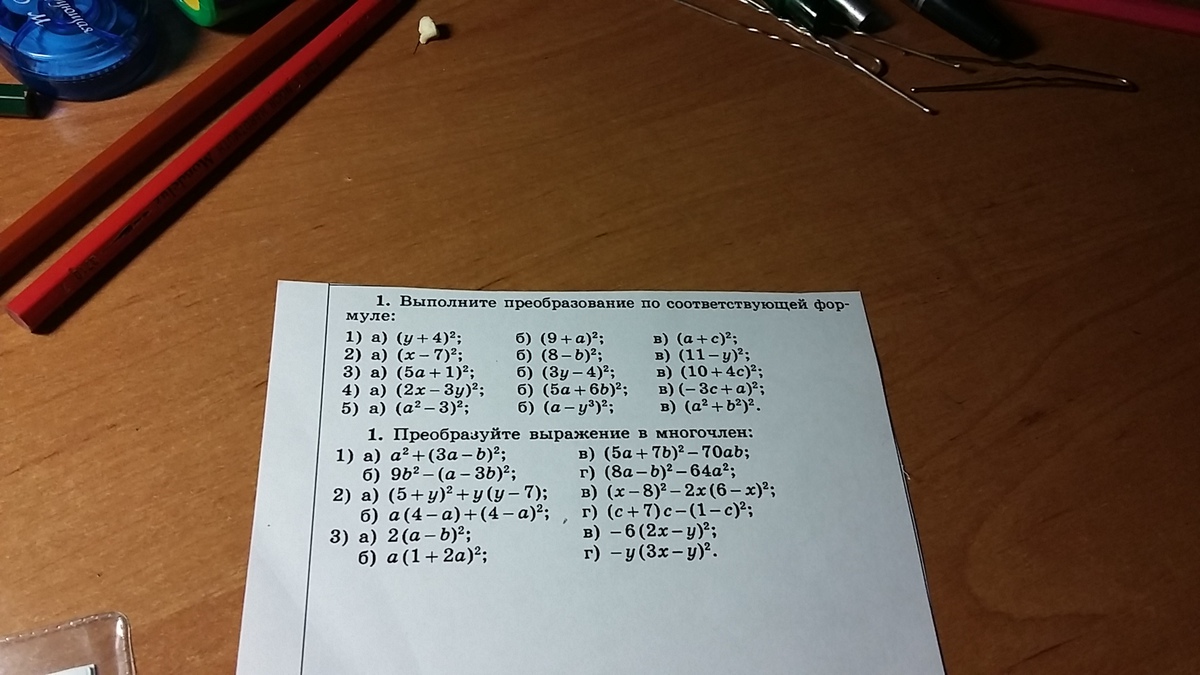 1. Выполните преобразование по соответствующей фор-
муле:
1) а) (y + 4)²; б) (9 + a)²; в) (a + c)²;
2) а) (x − 7)²; б) (8 − b)²; в) (11 − y)²;
3) а) (5a + 1)²; б) (3y − 4)²; в) (10 + 4c)²;
4) а) (2x − 3y)²; б) (5a + 6b)²; в) (− 3c + a)²;
5) а) (a² − 3)²; б) (a − y³)²; в) (a² + b²)².
1. Преобразуйте выражение в многочлен:
1) а) a² + (3a − b)²; в) (5a + 7b)² − 70ab;
б) 9b² − (a − 3b)²; г) (8a − b)² − 64a²;
2) а) (5 + y)² + y (y − 7); в) (x − 8)² − 2x (6 − x)²;
б) a (4 − a) + (4 − a)²; г) (c + 7) c − (1 − c)²;
3) а) 2 (a − b)²; в) − 6 (2x − y)²;
б) a (1 + 2a)²; г) − y (3x − y)².